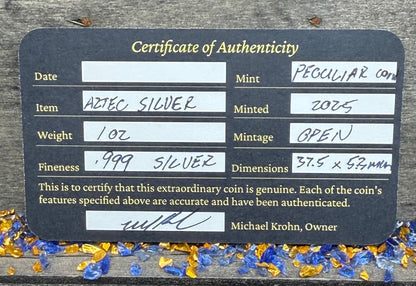 Certificate of Authenticity
Date Mint PECULIAR COIN
Item AZTEC SILVER Minted 2025
Weight 1 OZ Mintage OPEN
Fineness .999 SILVER Dimensions 37.5 x 5.7 mm
This is to certify that this extraordinary coin is genuine. Each of the coin's
features specified above are accurate and have been authenticated.
Michael Krohn, Owner